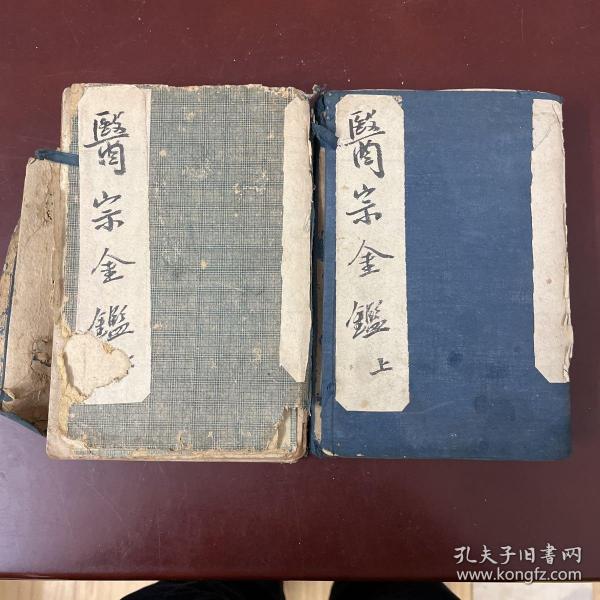 醫宗金鑑
醫宗金鑑
上
孔夫子旧书网
www.kongfz.com